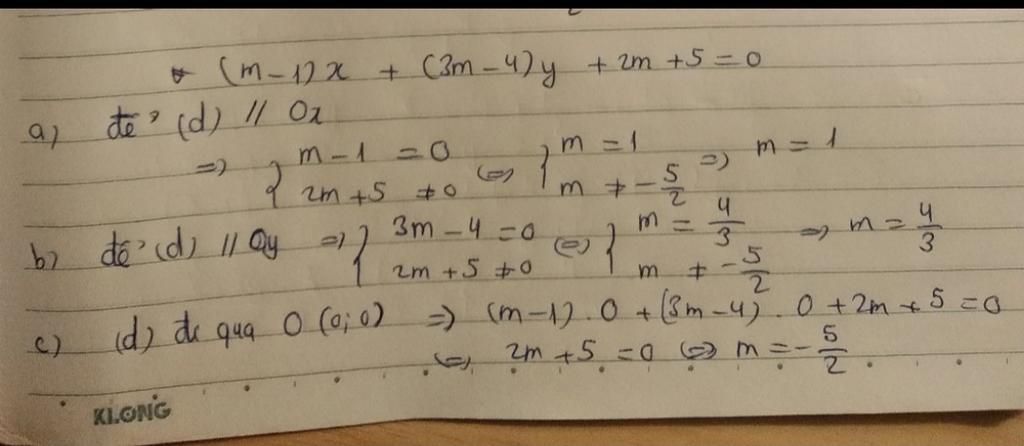 * (m-1)x + (3m-4)y + 2m+5=0
a) để (d) // Ox
=> { m-1 =0 <=> { m=1 => m = 1
2m+5 ≠0 m ≠ -5/2
b) để (d) // Oy => { 3m-4=0 <=> { m = 4/3 => m = 4/3
2m+5 ≠0 m ≠ -5/2
c) (d) đi qua O (0;0) => (m-1).0 +(3m-4).0 +2m+5=0
<=> 2m+5=0 <=> m=-5/2
KLONG